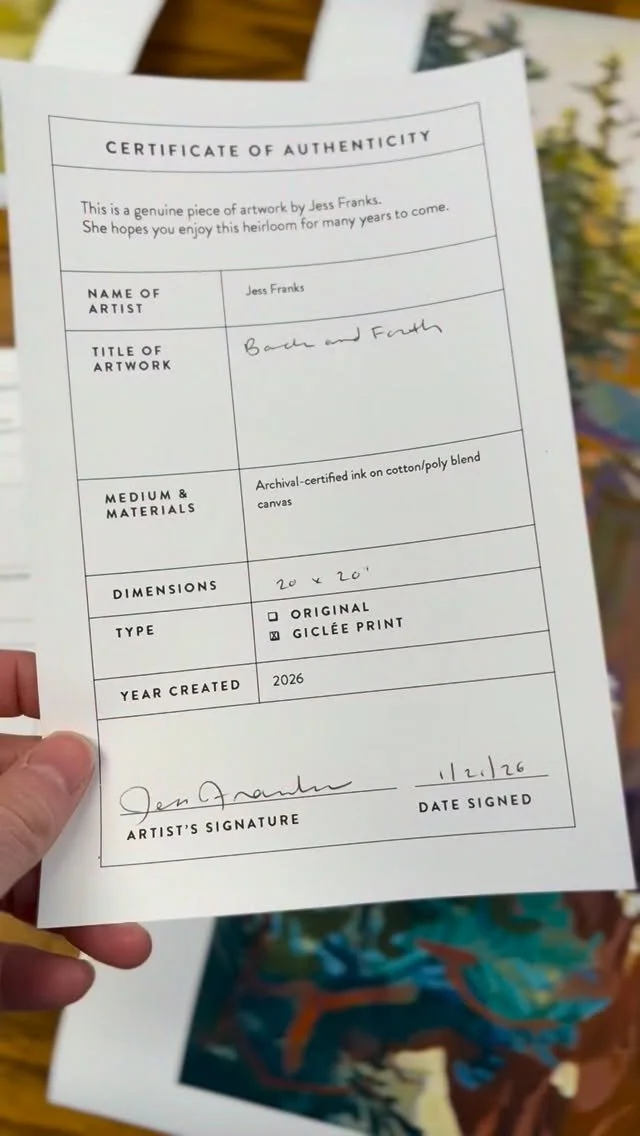 CERTIFICATE OF AUTHENTICITY
This is a genuine piece of artwork by Jess Franks.
She hopes you enjoy this heirloom for many years to come.
NAME OF
ARTIST
Jess Franks
TITLE OF
ARTWORK
Back and Forth
MEDIUM &
MATERIALS
Archival-certified ink on cotton/poly blend
canvas
DIMENSIONS
20 x 20"
TYPE
☐ ORIGINAL
☒ GICLÉE PRINT
YEAR CREATED
2026
Jess Franks
1/21/26
ARTIST'S SIGNATURE
DATE SIGNED